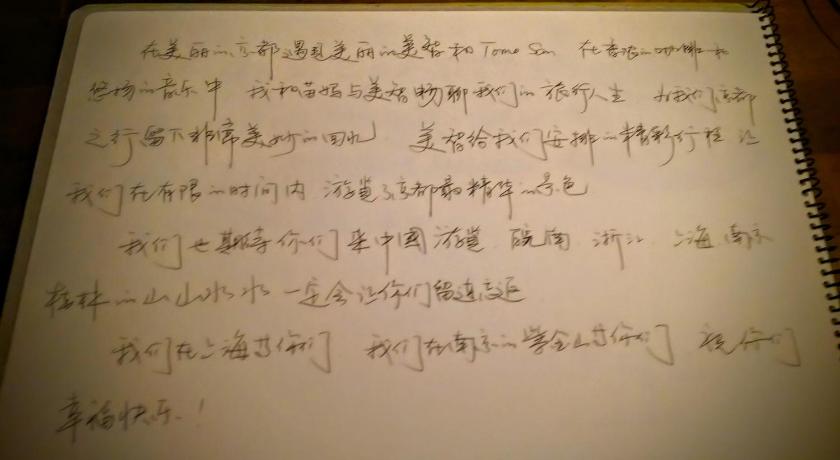 在美丽的京都遇见美丽的美智和 Tomo San 在香浓的咖啡和
悠扬的音乐中 我和苗妈与美智畅聊我们的旅行人生 为我们京都
之行留下非常美妙的回忆 美智给我们安排的精彩行程 让
我们在有限的时间内 游览了京都最精华的景色
我们也期待你们来中国游览 皖南 浙江 上海 南京
桂林的山山水水 一定会让你们留连忘返
我们在上海等你们 我们在南京的紫金山等你们 祝你们
幸福快乐!